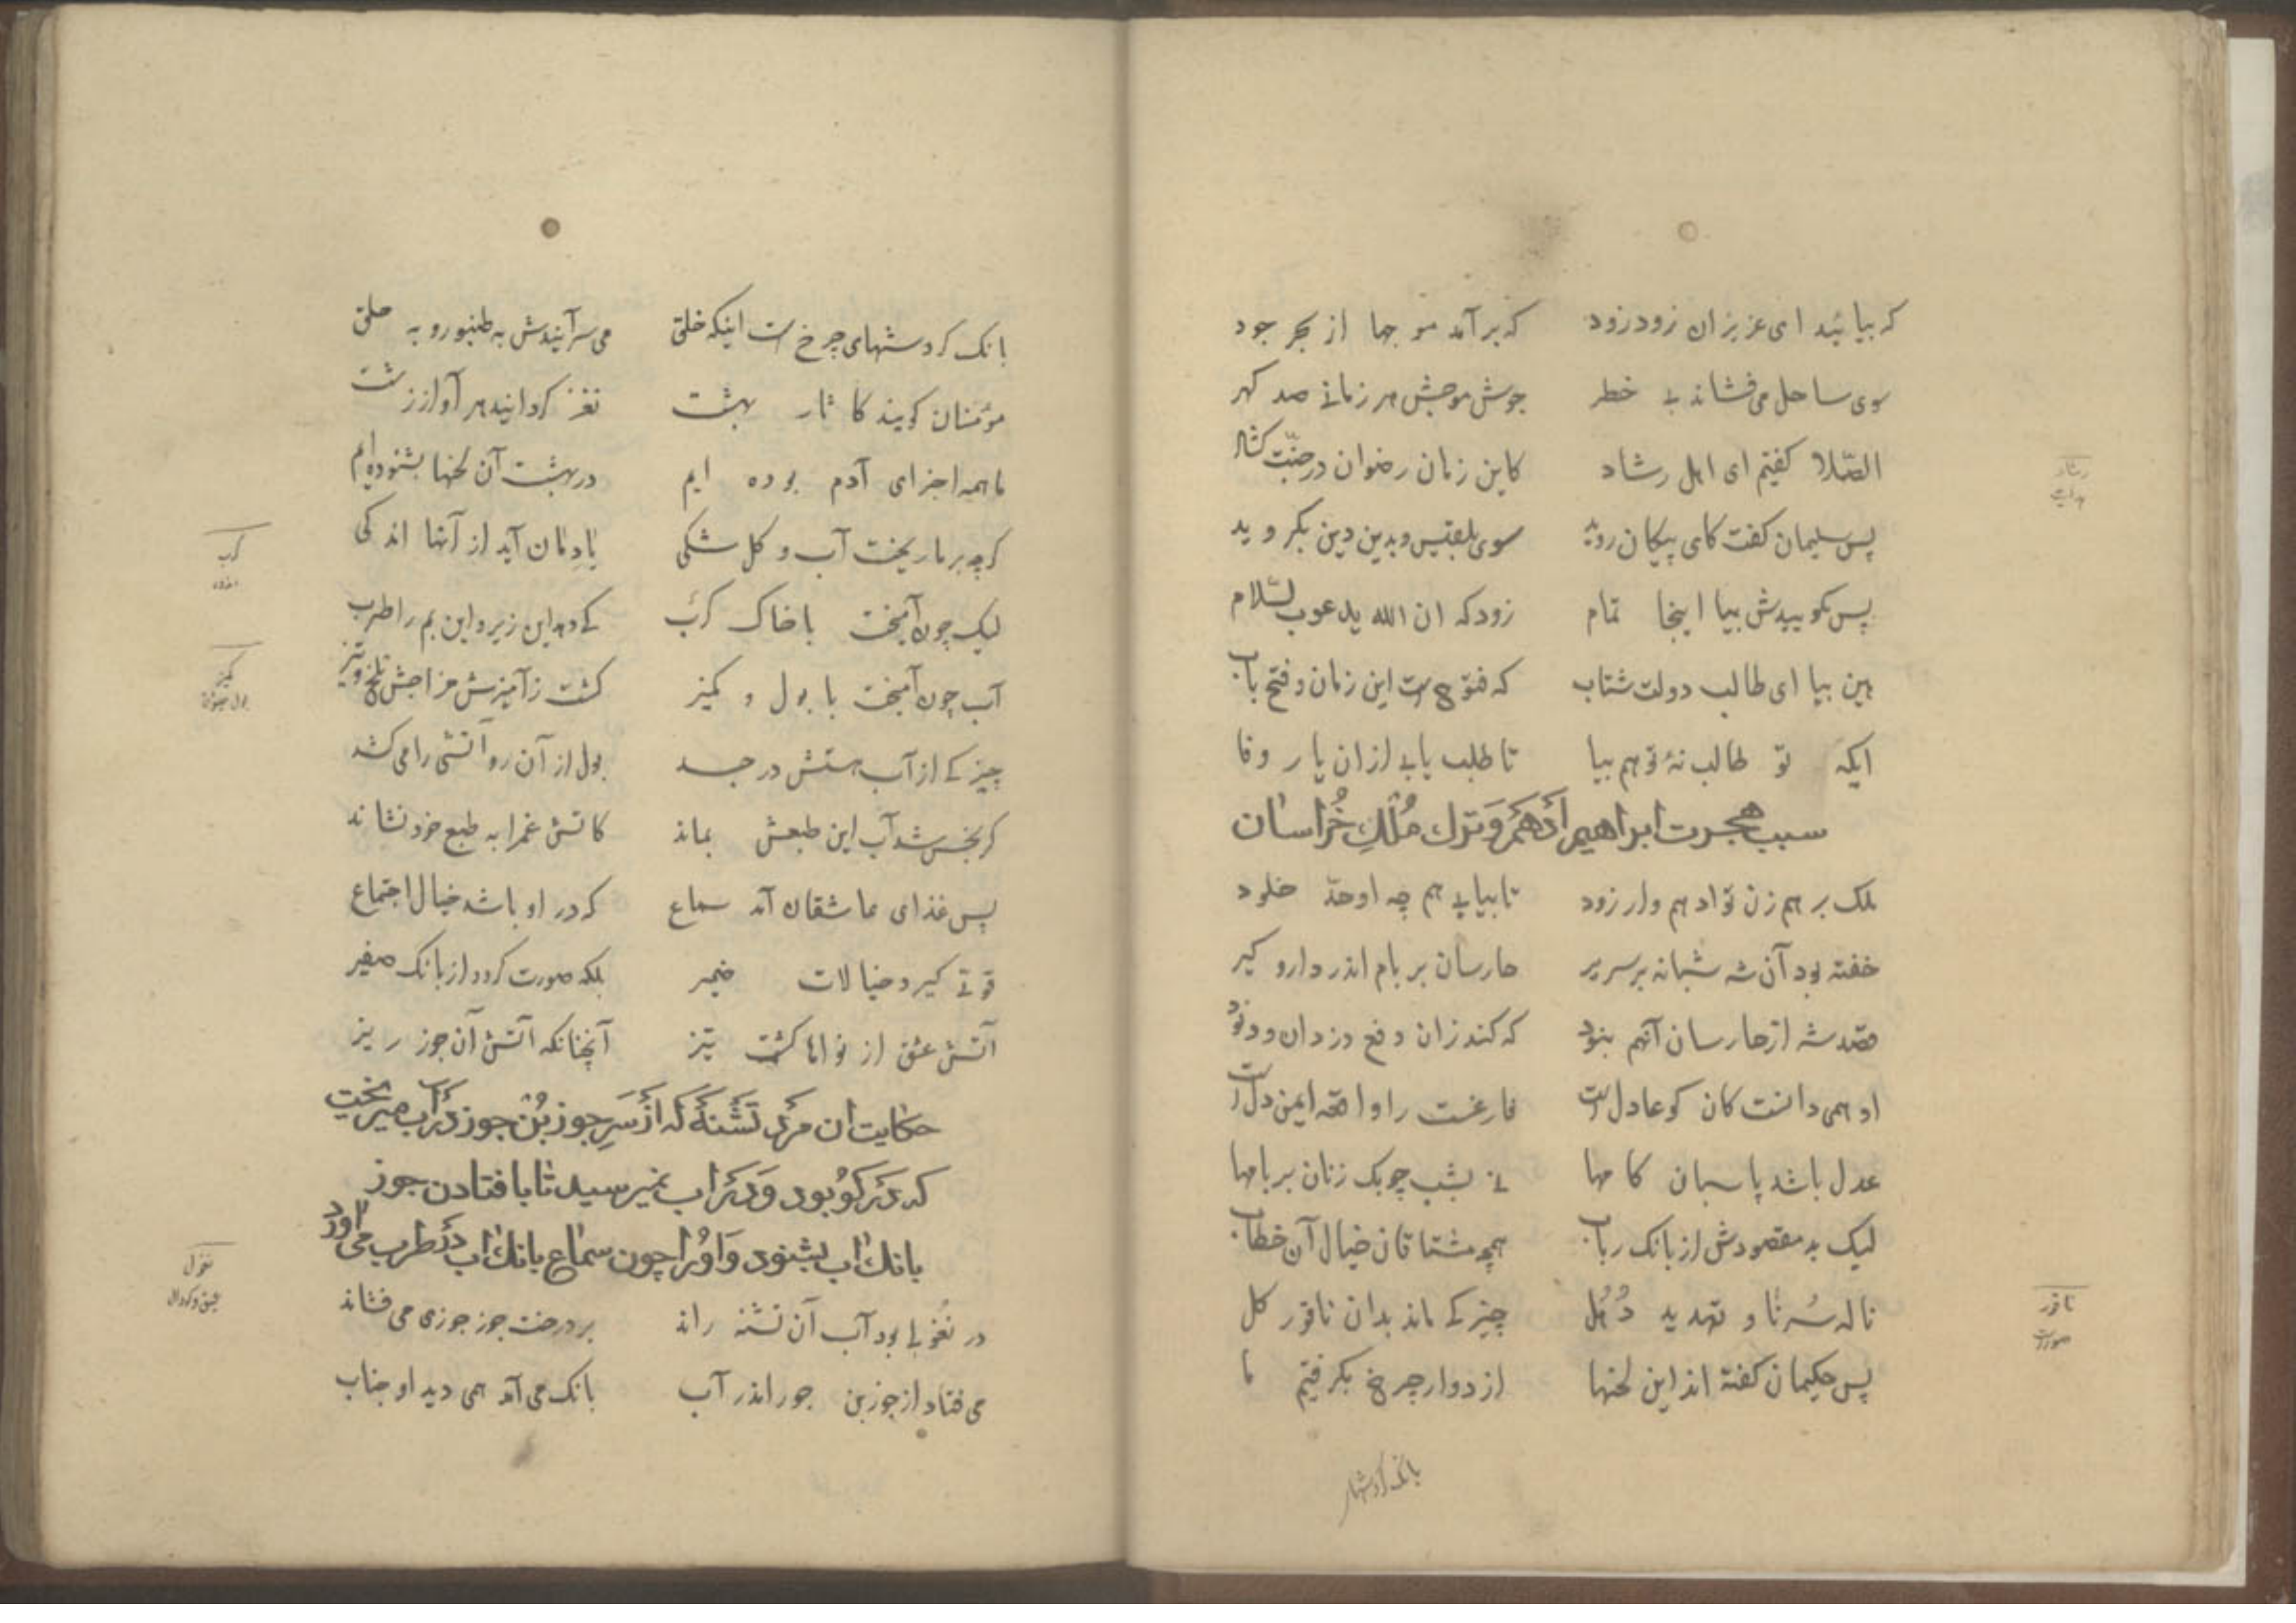 که بیائید ای عزیزان زود زود که برآمد موجها از بحر جود
سوی ساحل می فشاند بے خطر جوش موجش هر زمانے صد کهر
الصّلا کفتیم ای اهل رشاد کاین زمان رضوان در جنّت کشاد
پس سلیمان کفت کای پیکان روید سوی بلقیس و بدین دین بکروید
پس بکوییدش بیا اینجا تمام زود که ان الله یدعوب لسّلام
هین بیا ای طالب دولت شتاب که فتوحست این زمان و فتح باب
ایکه تو طالب نهٔ تو هم بیا تا طلب یابے ازان یار وفا
سبب هجرت ابراهیم أدهم وترك مُلْكِ خُراسان
ملک بر هم زن تو ادهم وار زود تا بیابے هم چه او حدّ خلود
خفته بود آن شه شبانه بر سریر حارسان بر بام اندر دار و کیر
قصد شه از حارسان آنهم نبود که کند زان دفع دزدان و دنود
او همی دانست کان کو عادلست فارغست را واقعه ایمن دلست
عدل باشد پاسبان کامها نے بشب چوبک زنان بر بامها
لیک بد مقصودش از بانک رباب همچو مشتاقان خیال آن خطاب
ناله سُرنا و تهدید دُهُل چیزکے ماند بدان ناقور کل
پس حکیمان کفته اند این لحنها از دوار چرخ بکرفتیم ما
بانک کردشهای
رشاد
هدایت
ناقور
صورت
بانک کردشهای چرخ ست اینکه خلق می سرآیندش به طنبور و به حلق
مؤمنان کویند کاثار بهشت نغز کردانید هر آواز زشت
ما همه اجزای آدم بوده ایم در بهشت آن لحنها بشنوده ایم
کرچه بر ما ریخت آب و کل شکی یادمان آید از آنها اندکی
لیک چون آمیخت با خاک کرَب کے دهد این زیر و این بم را طرب
آب چون آمیخت با بول و کمیز کشت زآمیزش مزاجش تلخ و تیز
چیزکے از آب هستش در جسد بول از آن رو آتشی را می کشد
کر نجس شد آب این طبعش بماند کاتش غم را به طبع خود نشاند
پس غذای عاشقان آمد سماع که در او باشد خیال اجتماع
قوتے کیرد خیالات ضمیر بلکه صورت کردد از بانک صفیر
آتش عشق از نواها کشت تیز آنچنانکه آتش آن جوز ریز
حکایت ان مرد تَشْنَهٔ که از سَرِ جوز بُنْ جوز در آب میریخت
که در کوْ بود و در اب نمیرسید تا با فتادن جوز
بانك اب بشنود و اوْرا چون سماع بانك اب در طرب می اورد
در نُغولے بود آب آن تشنه راند بر درخت جوز جوزی می فشاند
می فتاد از جوزبن جوز اندر آب بانک می آمد همی دید او حباب
کرب
اندوه
کمیز
بول
نغول
عمیق و کودال